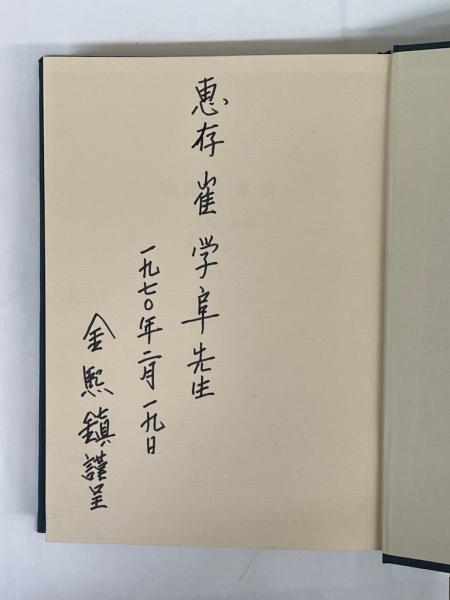 惠存 崔学阜先生
一九七〇年二月一九日
金熙鎮謹呈